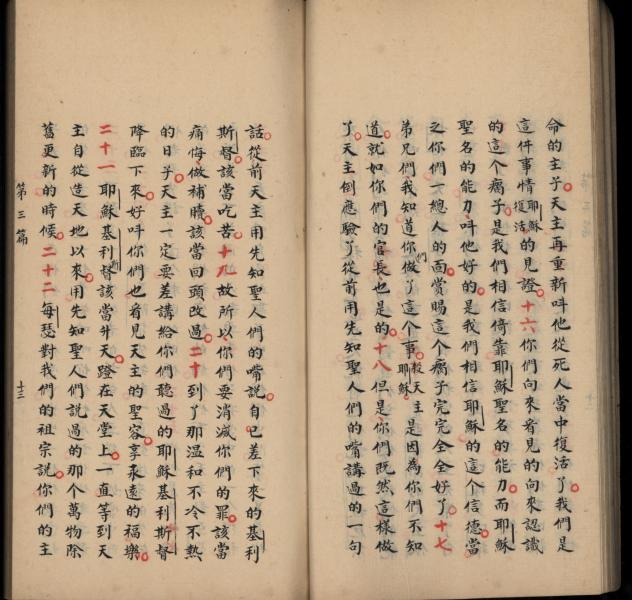 命的主子天主再重新呌他從死人當中復活了我們是
這件事情耶穌復活的見證十六你們向來看見的向來認識
的這個瘸子是我們相信倚靠耶穌聖名的能力而耶穌
聖名的能力呌他好的是我們相信耶穌的這個信德當
之你們一總人的面賞賜這個瘸子完完全全好了十七
弟兄們我知道你們做了這個事殺天主耶穌是因為你們不知
道就如你們的官長也是的十八但是你們既然這樣做
了天主倒應驗了從前用先知聖人們的嘴講過的一句
話從前天主用先知聖人們的嘴說自己差下來的基利
斯督該當吃苦十九故所以你們要消滅你們的罪該當
痛悔做補贖該當回頭改過二十到了那温和不冷不熱
的日子天主一定要差講給你們聽過的耶穌基利斯督
降臨下來好呌你們也看見天主的聖容享永遠的福樂
二十一耶穌基利斯督該當升天蹬在天堂上一直等到天
主自從造天地以來用先知聖人們說過的那個萬物除
舊更新的時候二十二每瑟對我們的祖宗說你們的主
第三篇
十三